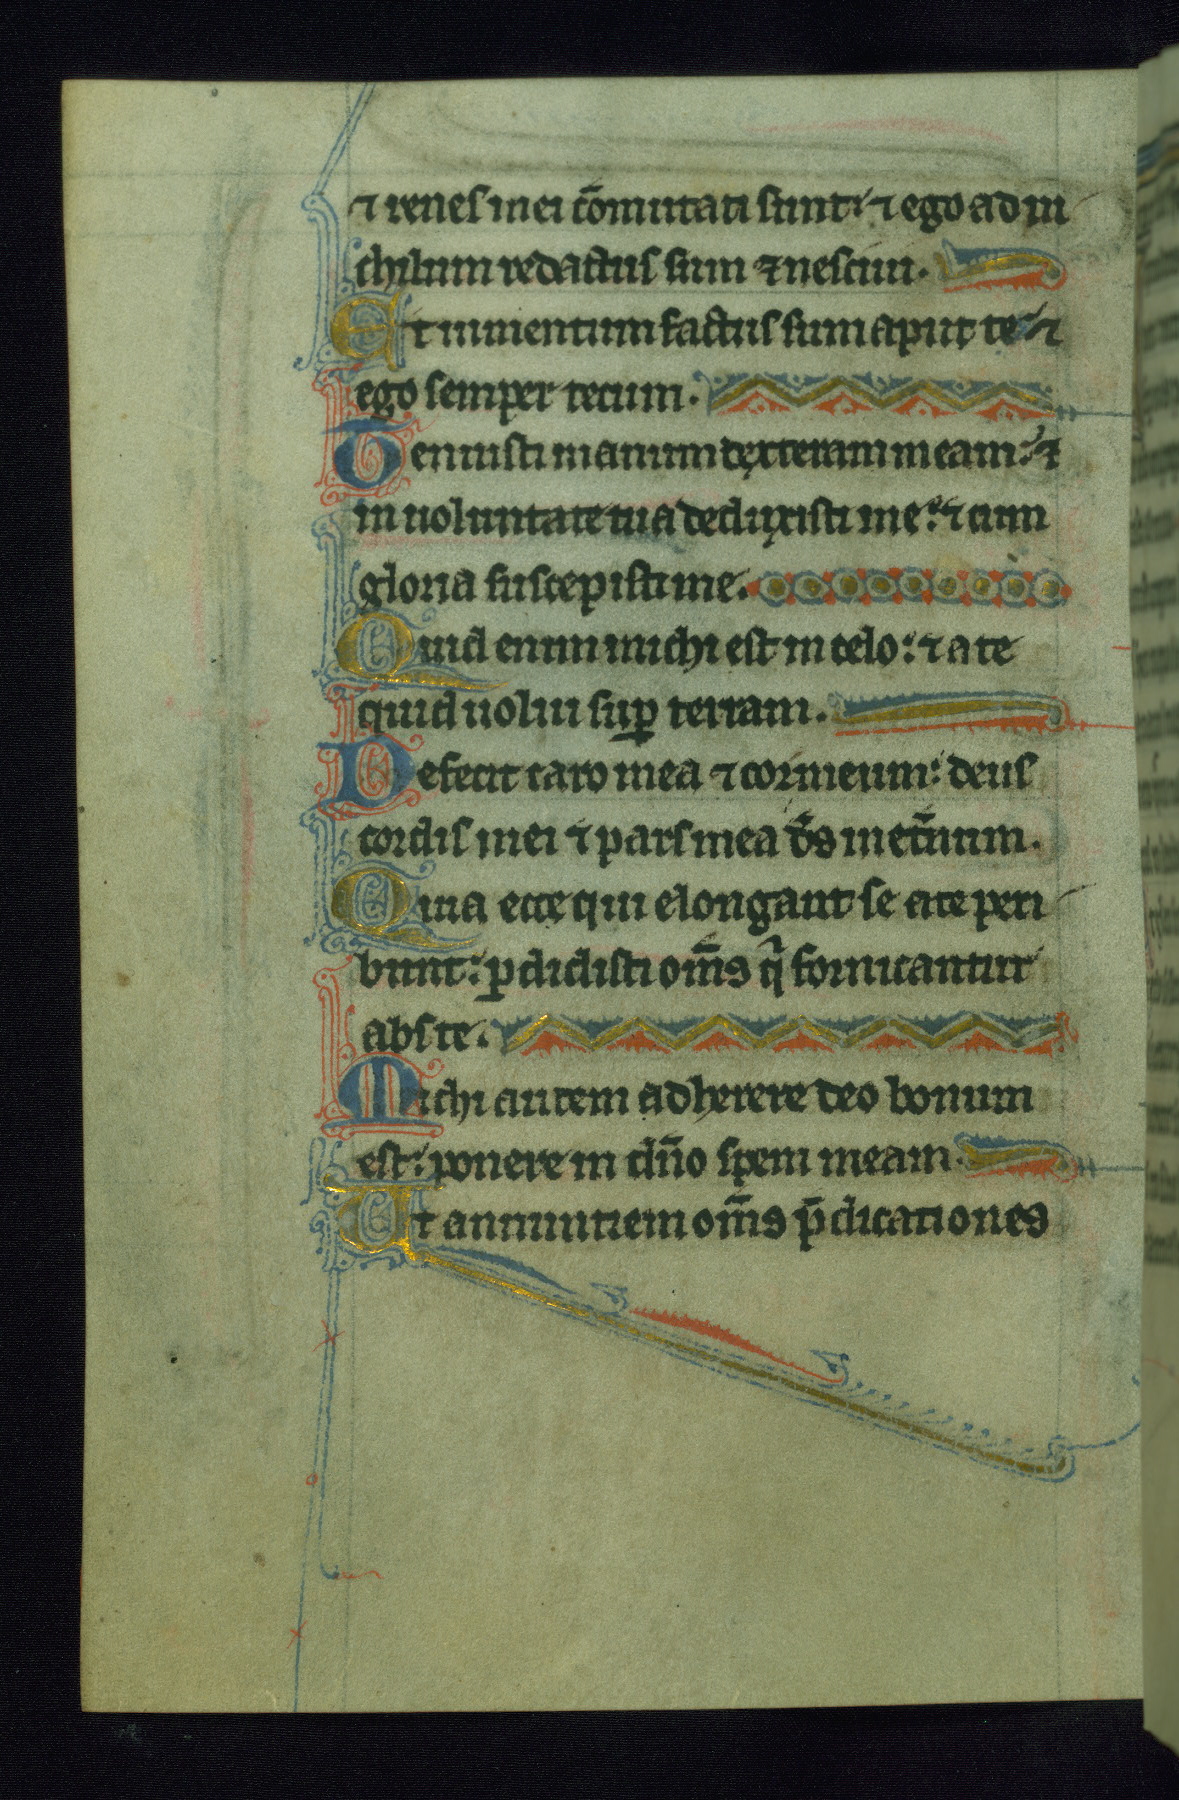 ⁊ renes mei cōmutati sunt: ⁊ ego ad ni
chilum redactus sum ⁊ nesciui.
Et iumentum factus sum aput te: ⁊
ego semper tecum.
Tenuisti manum dexteram meam: ⁊
in uoluntate tua deduxisti me: ⁊ cum
gloria suscepisti me.
Quid enim michi est in celo: ⁊ a te
quid uolui suꝑ terram.
Defecit caro mea ⁊ cor meum: deus
cordis mei ⁊ pars mea d̄s in et̄num.
Quia ecce qui elongant se a te peri
bunt: ꝑdidisti om̄s q̇ fornicantur
abs te.
Michi autem adherere deo bonum
est: ponere in dn̄o spem meam.
Ut annuntiem om̄s p̄dicationes